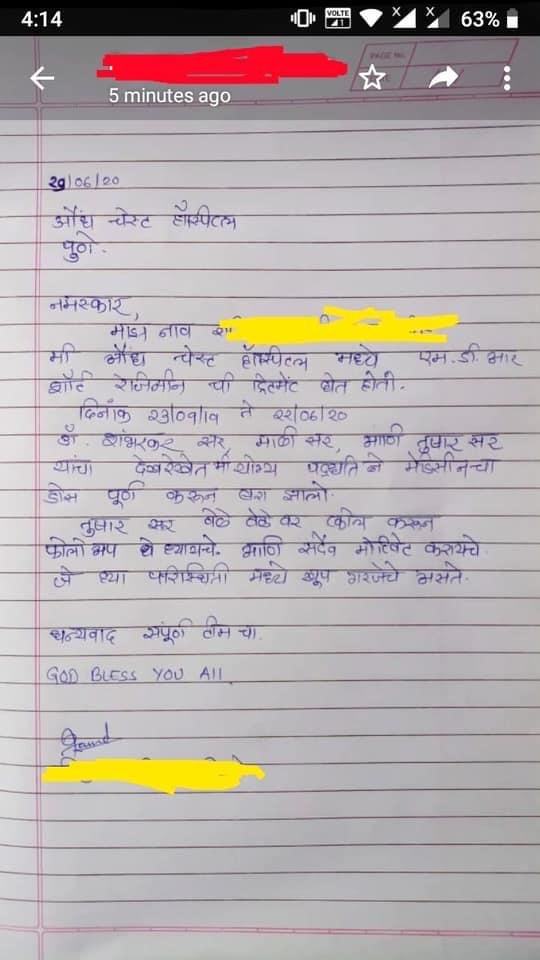 4:14
VOLTE
63%
PAGE NO.
5 minutes ago
29/06/20
औंध चेस्ट हॉस्पिटल
पुणे.
नमस्कार,
माझं नाव
मी औंध चेस्ट हॉस्पिटल मध्ये एम.डी.आर
शॉर्ट रेजिमीन ची ट्रिटमेंट घेत होतो.
दिनाँक २३/०९/१९ ते २२/०६/२०
डॉ. शंभरकर सर, माळी सर, आणि तुषार सर
यांचा देखरेखेत मी योग्य पद्धति ने मेडिसीनचा
डोस पूर्ण करून बरा झालो.
तुषार सर वेळो वेळी वर कॉल करून
फोलो अप घ्यायचे. आणि सदैव मोटिवेट करायचे
जे ह्या परिस्थिती मध्ये खूप गरजेचे असते.
धन्यवाद संपूर्ण टीम चा.
GOD BLESS YOU All.